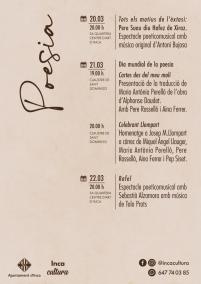 Poesia
20.03
20.00 h
Tots els motius de l'èxtasi:
Pere Suau diu Hafez de Xiraz.
Espectacle poeticomusical amb
música original d'Antoni Bujosa
21.03
19.00 h
CLAUSTRE DE
SANT
DOMINGO
Dia mundial de la poesia
Cartes des del meu molí
Presentació de la traducció de
Maria Antònia Perelló de l'obra
d'Alphonse Daudet.
Amb Pere Rosselló i Aina Ferrer.
20.00 h
CLAUSTRE DE
SANT
DOMINGO
Celebrant Llompart
Homenatge a Josep M.Llompart
a càrrec de Miquel Àngel Llauger,
Maria Antònia Perelló, Pere
Rosselló, Aina Ferrer i Pap Siset.
22.03
20.00 h
Rafel
Espectacle poeticomusical amb
Sebastià Alzamora amb música
de Tolo Prats
Ajuntament d'Inca
Inca
cultura
@incacultura
647 74 03 85